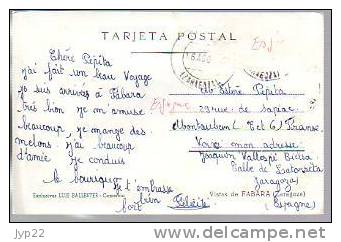 TARJETA POSTAL
Chère Pépita
j'ai fait un beau voyage
je suis arrivée à Fabara
très bien je m'amuse
beaucoup, je mange des
melons. j'ai beaucoup
d'amie je conduis
le bourrique
je t'embrasse
bien
fort Félicité
Espagne
Esp
(ZARAGOZA)
Pépita
29 rue de Sapiac
Montauban (T et G) France
Voici mon adresse
Joaquin Vallespi
Calle de
Zaragoza
(Espagne)
Exclusivas LUIS BALLESTER
Vistas de FABARA (Zaragoza)
jyp22
www.delcampe.net